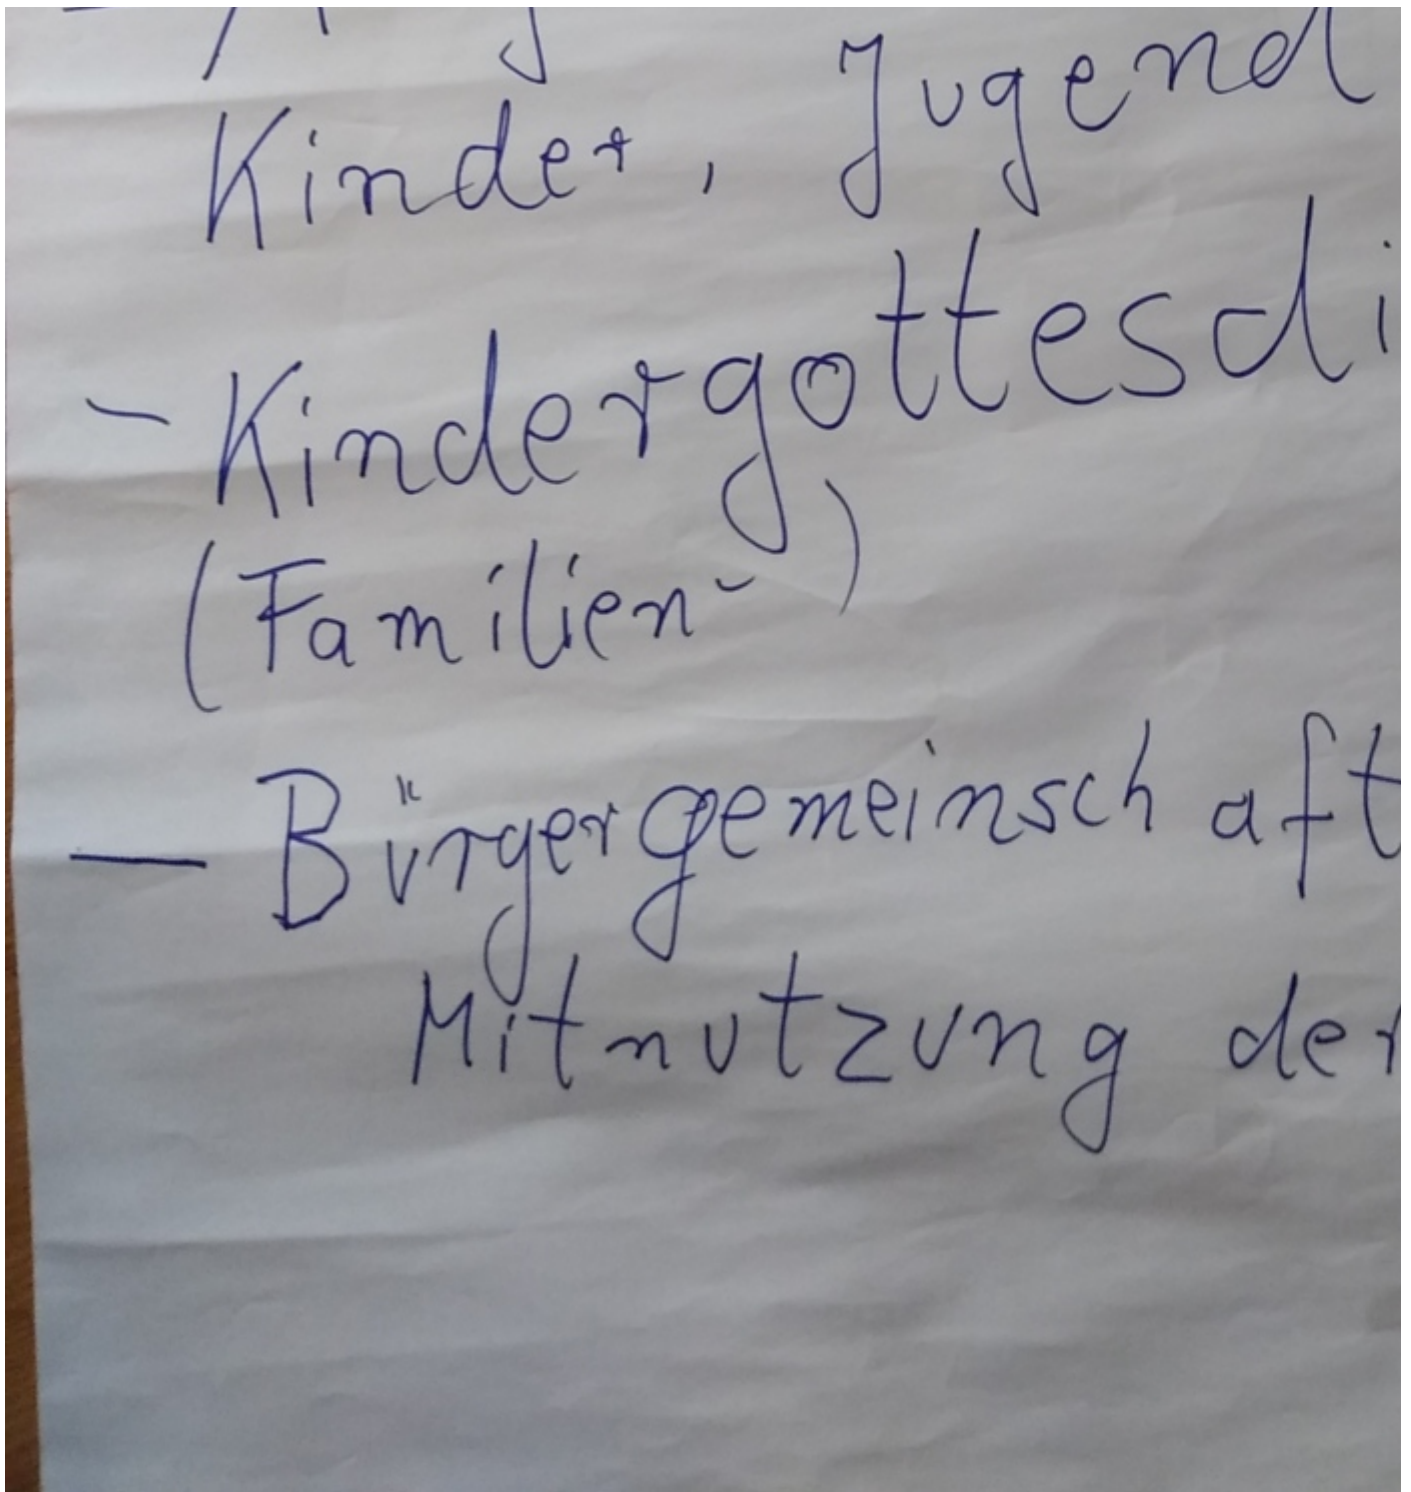 Kinder, Jugend
- Kindergottesdi
(Familien-)
- Bürgergemeinschaft
Mitnutzung der